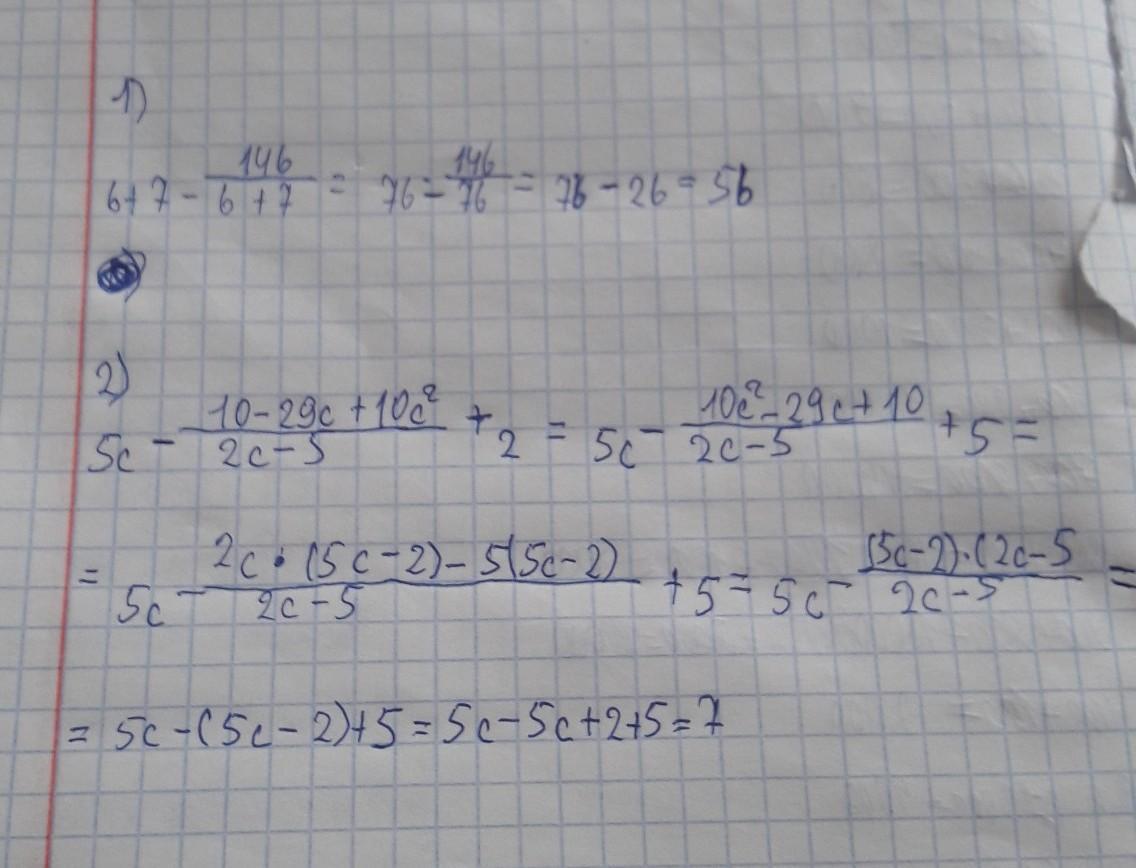 1)
6+7 - 146/6+7 = 76 - 146/76 = 76 - 26 = 56
2)
5c - 10-29c+10c²/2c-5 + 2 = 5c - 10c²-29c+10/2c-5 + 5 =
= 5c - 2c·(5c-2)-5(5c-2)/2c-5 + 5 = 5c - (5c-2)·(2c-5/2c-5 =
= 5c-(5c-2)+5 = 5c-5c+2+5=7